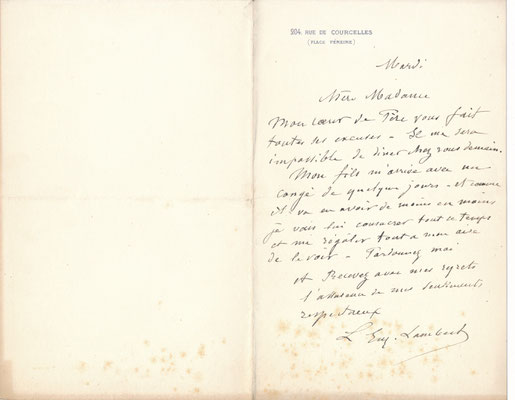 204. RUE DE COURCELLES
(PLACE PEREIRE)
Mardi
Madame
Mon cœur de Père vous fait
toutes ses excuses – Il me sera
impossible de diner chez vous demain.
Mon fils m'arrive avec un
congé de quelques jours – et comme
il va en avoir de moins en moins
je vais lui consacrer tout ce temps
et me régaler tout a mon aise
de le voir – Pardonnez moi
et Recevez avec mes regrets
l'assurance de mes sentiments
respectueux
L Eug. Lambert